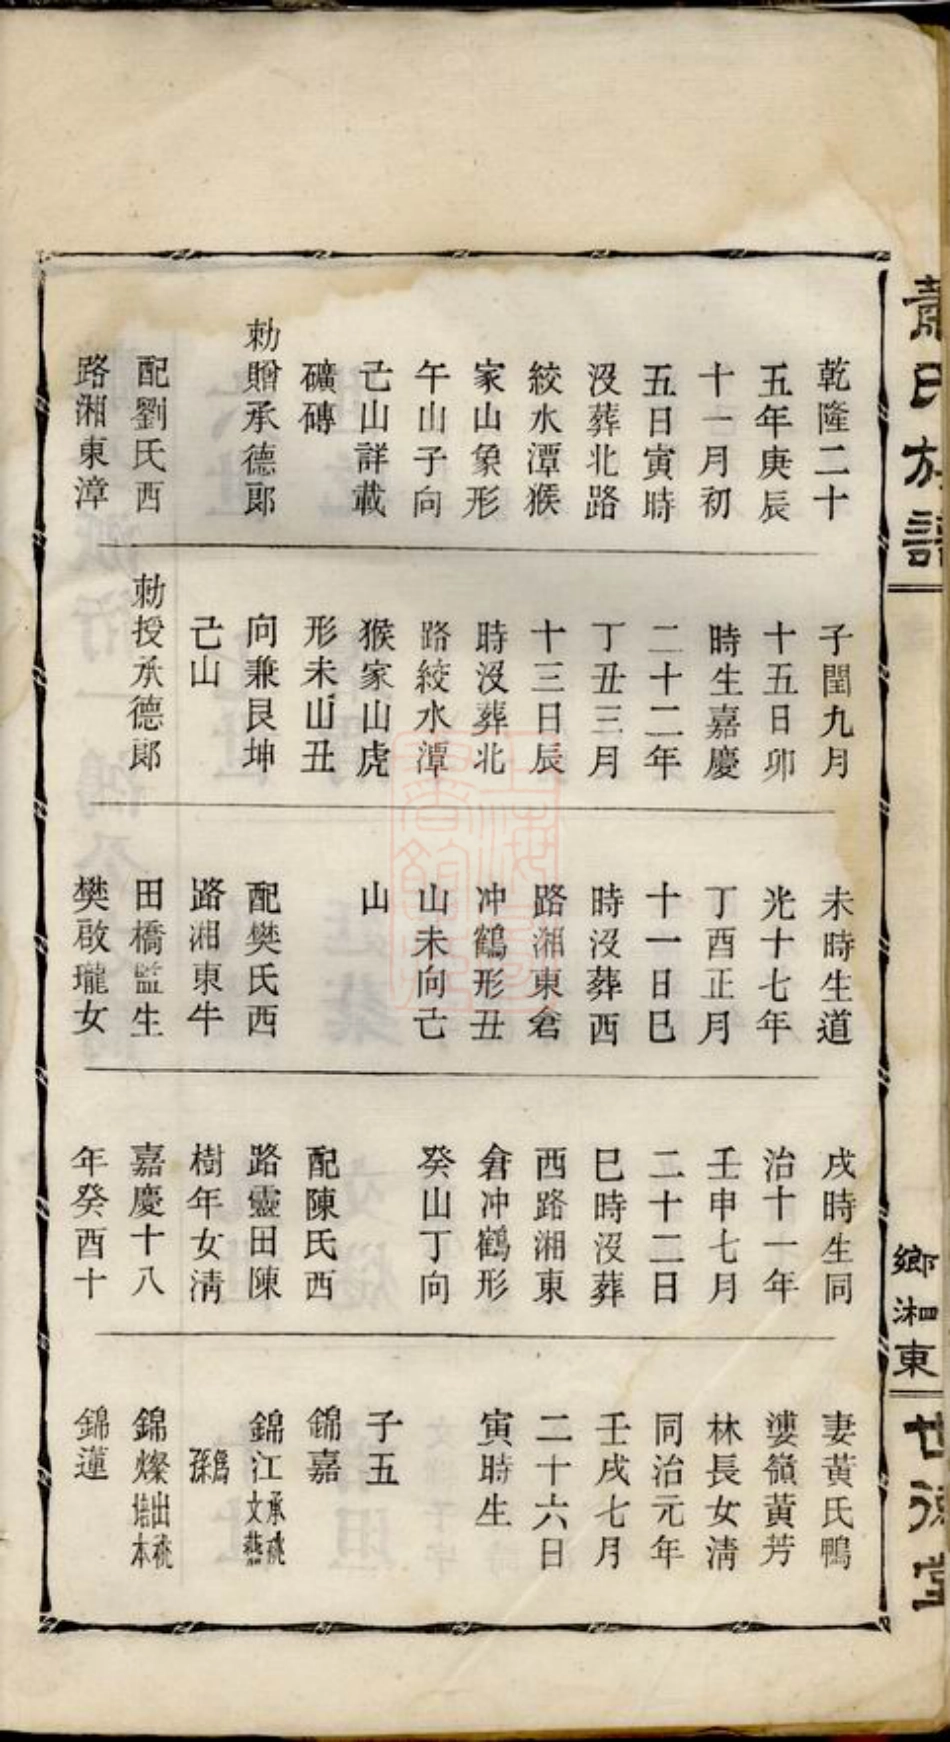 蕭氏族譜
鄉湘東
世德堂
乾隆二十
五年庚辰
十一月初
五日寅時
沒葬北路
絞水潭猴
家山象形
午山子向
己山詳載
礦磚
勅贈承德郎
配劉氏西
路湘東漳
子閏九月
十五日卯
時生嘉慶
二十二年
丁丑三月
十三日辰
時沒葬北
路絞水潭
猴家山虎
形未山丑
向兼艮坤
己山
勅授承德郎
未時生道
光十七年
丁酉正月
十一日巳
時沒葬西
路湘東倉
冲鶴形丑
山未向己
山
配樊氏西
路湘東牛
田橋監生
樊啟瓏女
戌時生同
治十一年
壬申七月
二十二日
巳時沒葬
西路湘東
倉冲鶴形
癸山丁向
配陳氏西
路靈田陳
樹年女清
嘉慶十八
年癸酉十
妻黃氏鴨
婁嶺黃芳
林長女清
同治元年
壬戌七月
二十六日
寅時生
子五
錦嘉
錦江承祧文燕
爲孫
錦燦出祧培本
錦蓮